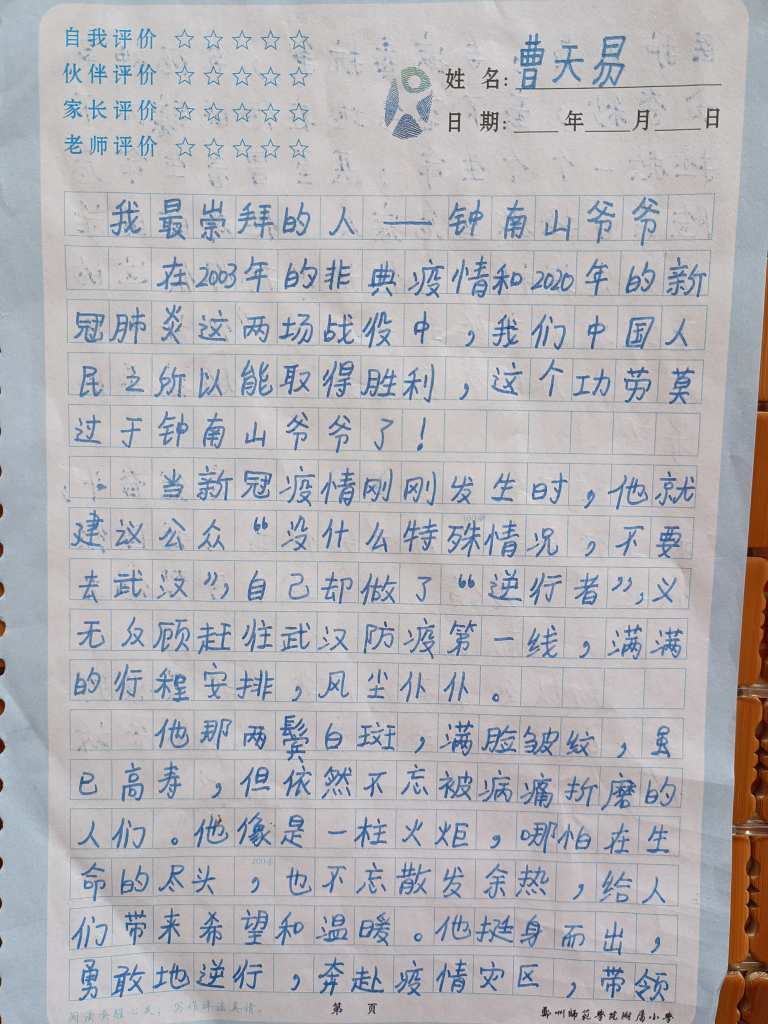 自我评价 ☆☆☆☆☆
伙伴评价 ☆☆☆☆☆
家长评价 ☆☆☆☆☆
老师评价 ☆☆☆☆☆
姓 名: 曹天易
日 期: 年 月 日
我最崇拜的人——钟南山爷爷
在2003年的非典疫情和2020年的新
冠肺炎这两场战役中，我们中国人
民之所以能取得胜利，这个功劳莫
过于钟南山爷爷了！
当新冠疫情刚刚发生时，他就
建议公众“没什么特殊情况，不要
去武汉”，自己却做了“逆行者”，义
无反顾赶往武汉防疫第一线，满满
的行程安排，风尘仆仆。
他那两鬓白斑，满脸皱纹，虽
已高寿，但依然不忘被病痛折磨的
人们。他像是一柱火炬，哪怕在生
命的尽头，也不忘散发余热，给人
们带来希望和温暖。他挺身而出，
勇敢地逆行，奔赴疫情灾区，带领
第 页
郑州师范学院附属小学